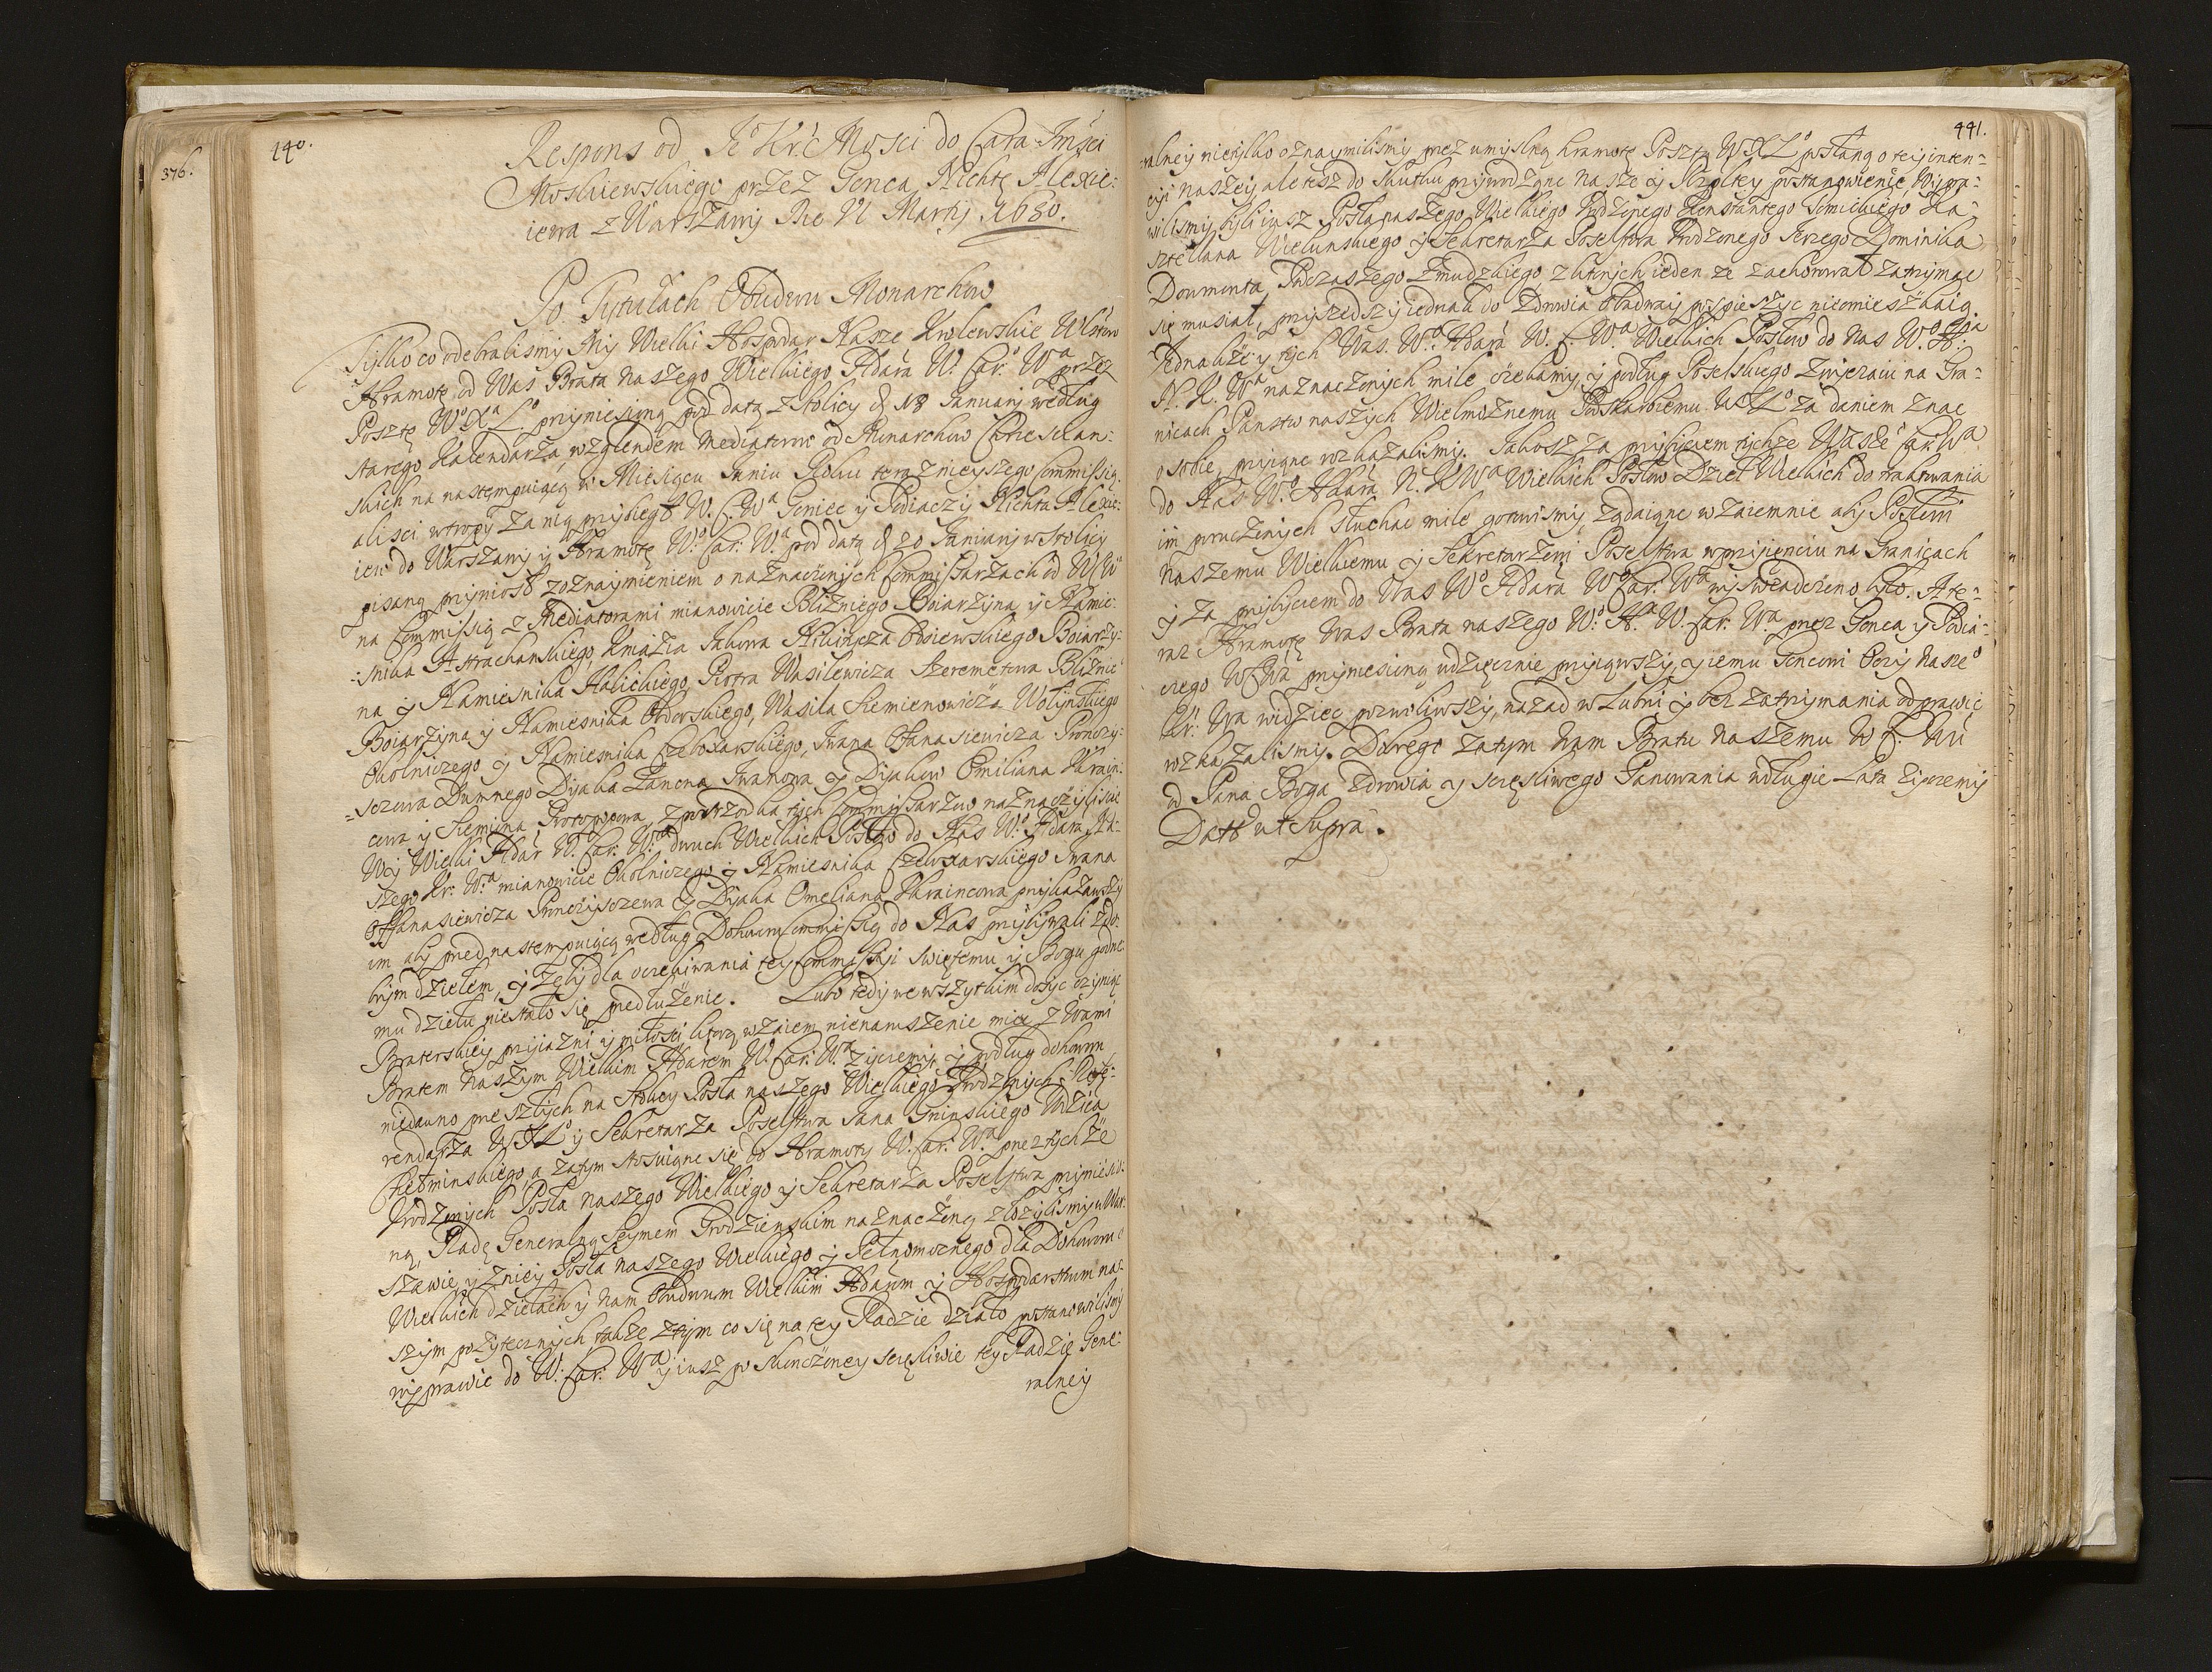 376.
440.
Respons od Je° Kr: Mosci do Cara Jmsci
Moskiewskiego przez Gonca Nichtę Alexie:
iewa z Warszawy Die VI Martij 1680.
Po Tytułach Obudwu Monarchow
Tylko co odebralismy My Wielki Hospodar Nasze Krolewskie
Hramotę od Was Brata naszego Wielkiego Hdara W. Car: Wa przez
Posztę W° Xa L° przyniesioną pod datą z Stolicy d. 18 Januarij według
starego Kalendarza, względem Mediatorow od Monarchow Chrzescian:
skich na następuiącą w Miesiącu Juniu Roku teraznieyszego Commissią:
alisci w tropy za nią przybiegł W. C. Wa Goniec y Podiaczy Nichta Alexie:
iew do Warszawy y Hramotę W° Car: Wa pod datą d. 20 Januarij w Stolicy
pisaną przyniosł z oznaymieniem o naznaczonych Commissarzach od
na Commissią z Mediatorami mianowicie Bliżniego Boiarzyna y Namie:
:snika Astrachanskiego, Kniazia Jakowa Nikitycza Odoiewskiego Boiarzy:
na y Namiesnika Halickiego, Piotra Wasilewicza Szeremetewa Bliżnie°
Boiarzyna y Namiesnika Obdorskiego, Wasila Siemienowicza Wołynskiego
Okolniczego y Namiesnika Czeboxarskiego, Jwana Offanasiewicza Pronczy:
=sczewa Dumnego Dijaka Łariona Jwanowa y Dijakow Emiliana Ukrain:
cowa y Siemiona Protopopowa, z posrzodka tych Commissarzow naznaczyliscie
Wy Wielki Hdar W. Car: Wa dwuch Wielkich Posłow do Nas W° Hdara Na:
szego Kr: Wa mianowicie Okolniczego y Namiesnika Czeboxarskiego Jwana
Offanasiewicza Pronczysczewa y Dijaka Omeliana Ukraincowa przykazawszy
im aby przed następuiącą według Dohworu Commissią do Nas przybywali z do:
brym dziełem, y żeby dla oczekiwania tey Commissiji swiętemu y Bogu godne:
mu dziełu niestało się przedłużenie. Lubo tedy we wszytkim dosyc czyniąc
Braterskiey przyiazni y miłosci ktorą wzaiem nienaruszenie miec z Wami
Bratem Naszym Wielkim Hdarem W. Car: Wa życzemy, y podług dohworu
niedawno przeszłych na Stolicy Posła naszego Wielkiego Urodzonych Refe:
rendarza WXL° y Sekretarza Poselstwa Jana Gninskiego
Chełminskiego, a zatym stosuiąc się do Hramoty W. Car: Wa przez tychże
Urodzonych Posła naszego Wielkiego y Sekretarza Poselstwa przyniesio:
ną, Radę Generalną Seymem Grodzienskim naznaczoną złożylismy w War:
szawie, y z niey Posła naszego Wielkiego y Pełnomocnego dla Dohworu o
Wielkich dziełach y nam Obudwum Wielkim Hdarom y Hospodarstwom na:
szym pożytecznych także z tym co się na tey Radzie działo postanowilismy
wyprawic do W. Car: Wa y iusz po skonczoney szczęśliwie tey Radzie Gene:
ralney
441.
ralney nietylko oznaymilismy przez umyslną hramotę Posztą WXL° posłaną o tey inten=
cyi naszey ale tesz do skutku przywodząc nasze y Rzpltey postanowienie, Wypra:
wilismy byli iusz Posła naszego Wielkiego Urodzonego Konstantego Tomickiego Ka:
sztellana Wielunskiego y Sekretarza Poselstwa Urodzonego Jerzego Dominika
Dowmonta Podczaszego Zmudzkiego, z ktorych ieden ze zachorował zatrzymac
się musiał, przyszedszy iednak do Zdrowia Obadway pospieszyc nieomieszkaią.
Jednakże y tych Was. W° Hdara W. C. Wa Wielkich Posłow do Nas W. Hdra
N. K. Wa naznaczonych mile czekamy, y podług Poselskiego zwyczaiu na Gra:
nicach Panstw naszych Wielmożnemu Podskarbiemu WXL° za daniem znac
o sobie, przyiąc rozkazalismy. Jakosz za przybyciem tychze Wasze° Car: Wa
do Nas W° Hdara N. K Wa Wielkich Posłow Dzieł Wielkich do traktowania
im poruczonych słuchac mile gotowismy ządaiąc wzaiemnie aby Posłowi
Naszemu Wielkiemu y Sekretarzowi Poselstwa w przyięciu na Granicach
y za przybyciem do Was W° Hdara W° Car: Wa wyswiadczono było. A te=
raz Hramotę Was Brata naszego W° H. W. Car: Wa przez Gonca y Podia:
czego WCWa przyniesioną wdzięcznie przyiąwszy, y iemu Goncowi Oczy Nasze°
Kr: Wa widziec pozwoliwszy, nazad w Lubvi y bez zatrzymania odprawic
rozkazalismy. Dobrego zatym Wam Bratu Naszemu W C. Wu
od Pana Boga Zdrowia y szczęsliwego Panowania w długie Lata życzemy
Datt° ut Supra.